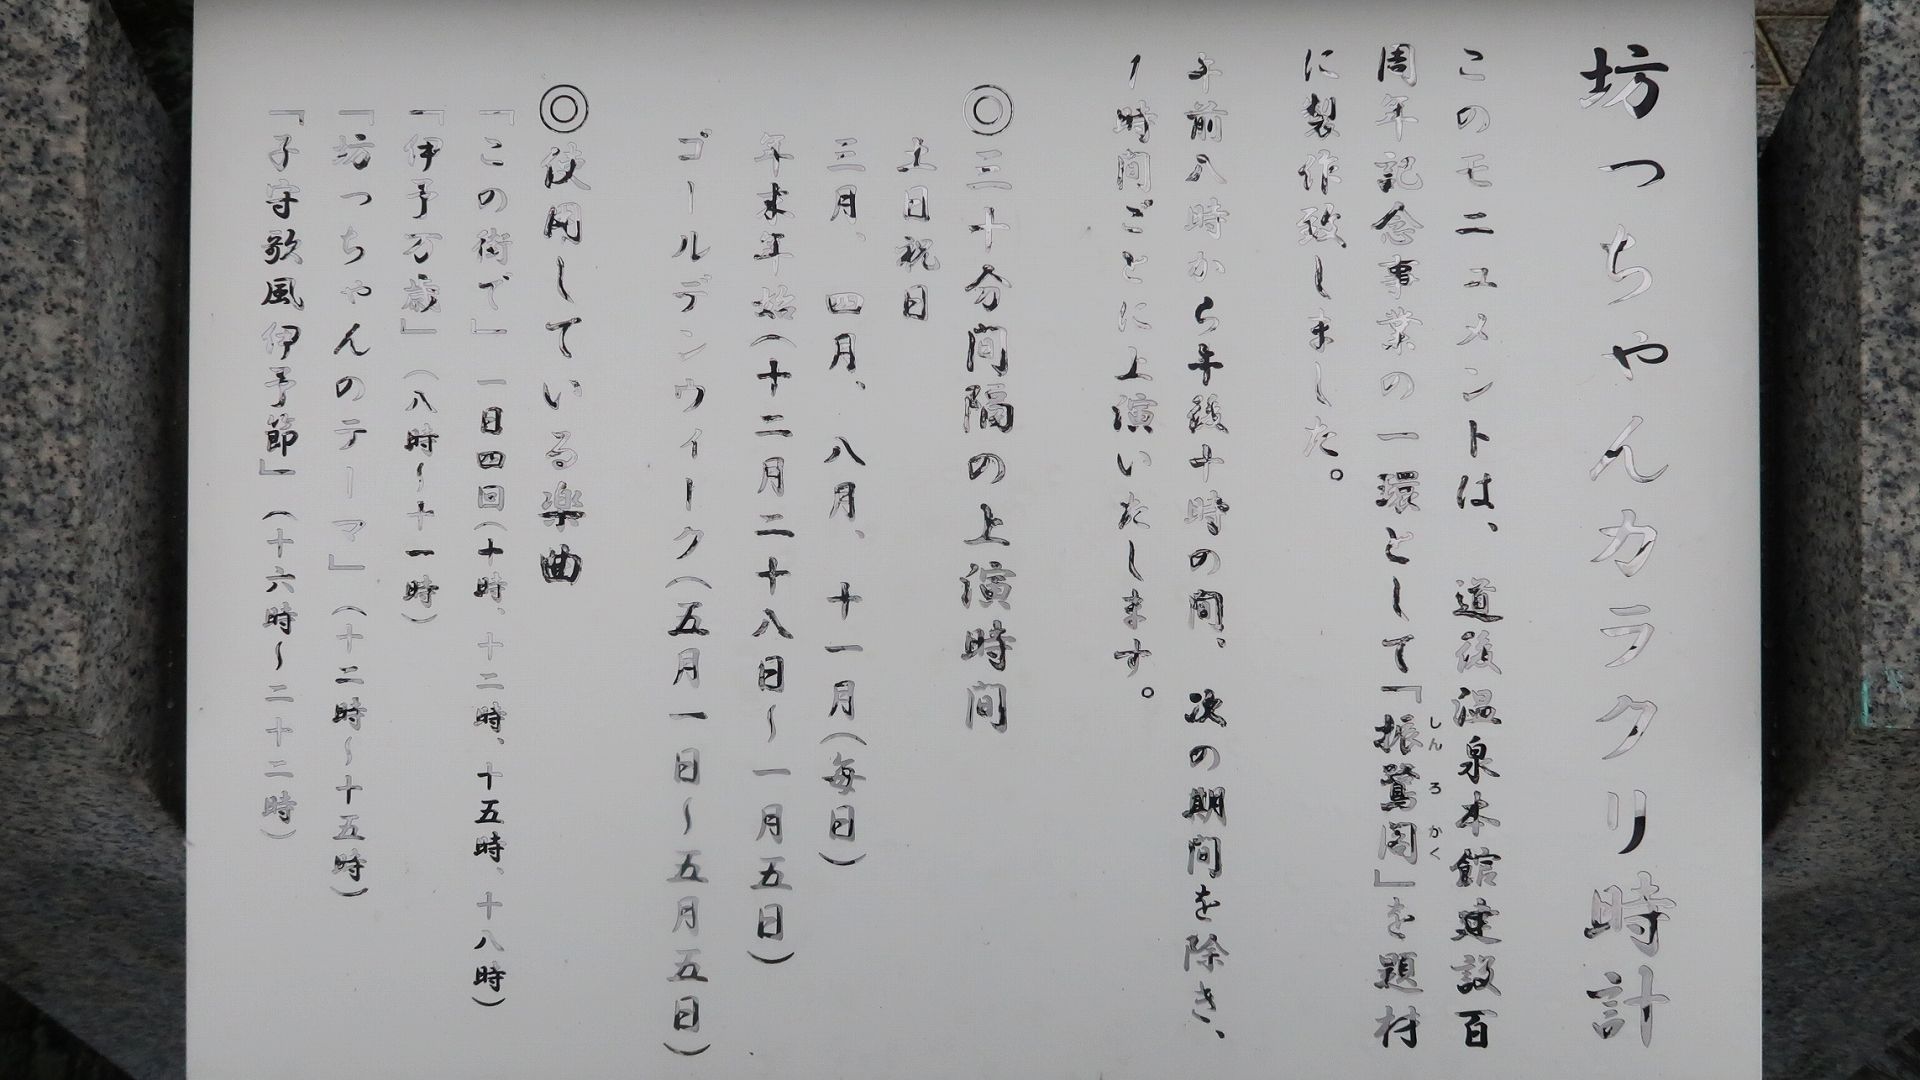 坊っちゃんカラクリ時計
このモニュメントは、道後温泉本館建設百
周年記念事業の一環として「振鷺閣」を題材
しんろかく
に製作致しました。
午前八時から午後十時の間、次の期間を除き、
1時間ごとに上演いたします。
◎三十分間隔の上演時間
土日祝日
三月、四月、八月、十一月(毎日)
年末年始(十二月二十八日~一月五日)
ゴールデンウィーク(五月一日~五月五日)
◎使用している楽曲
「この街で」一日四回(十時、十二時、十五時、十八時)
「伊予万歳」(八時~十一時)
「坊っちゃんのテーマ」(十二時~十五時)
「子守歌風伊予節」(十六時~二十二時)